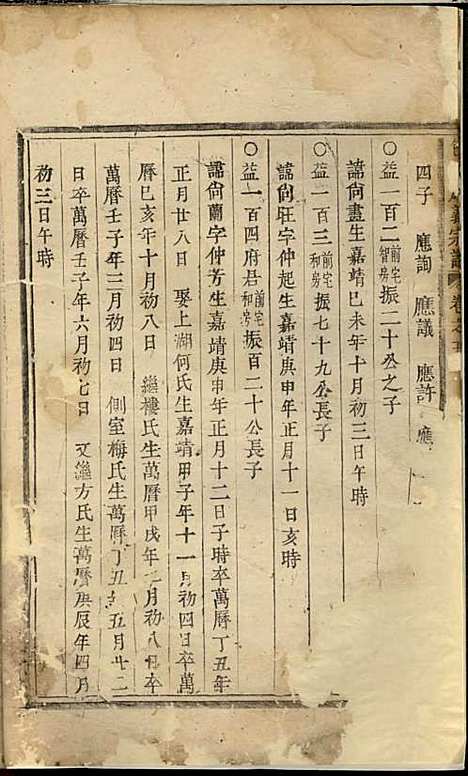 宗譜 卷之
四子 應詢 應議 應許 應
○益一百二前宅智房振二十公之子
諱尙晝生嘉靖己未年十月初三日午時
○益一百三前宅和房振七十九公長子
諱尙旺字仲起生嘉靖庚申年正月十一日亥時
○益一百四府君前宅和房振百二十公長子
諱尙蘭字仲芳生嘉靖庚申年正月十二日子時卒萬曆丁丑年
正月廿八日 娶上湖何氏生嘉靖甲子年十一月初四日卒萬
曆己亥年十月初八日 繼樓氏生萬曆甲戌年 月初八日卒
萬曆壬子年三月初四日 側室梅氏生萬曆丁丑年五月廿二
日卒萬曆壬子年六月初七日 又繼方氏生萬曆庚辰年四月
初三日午時